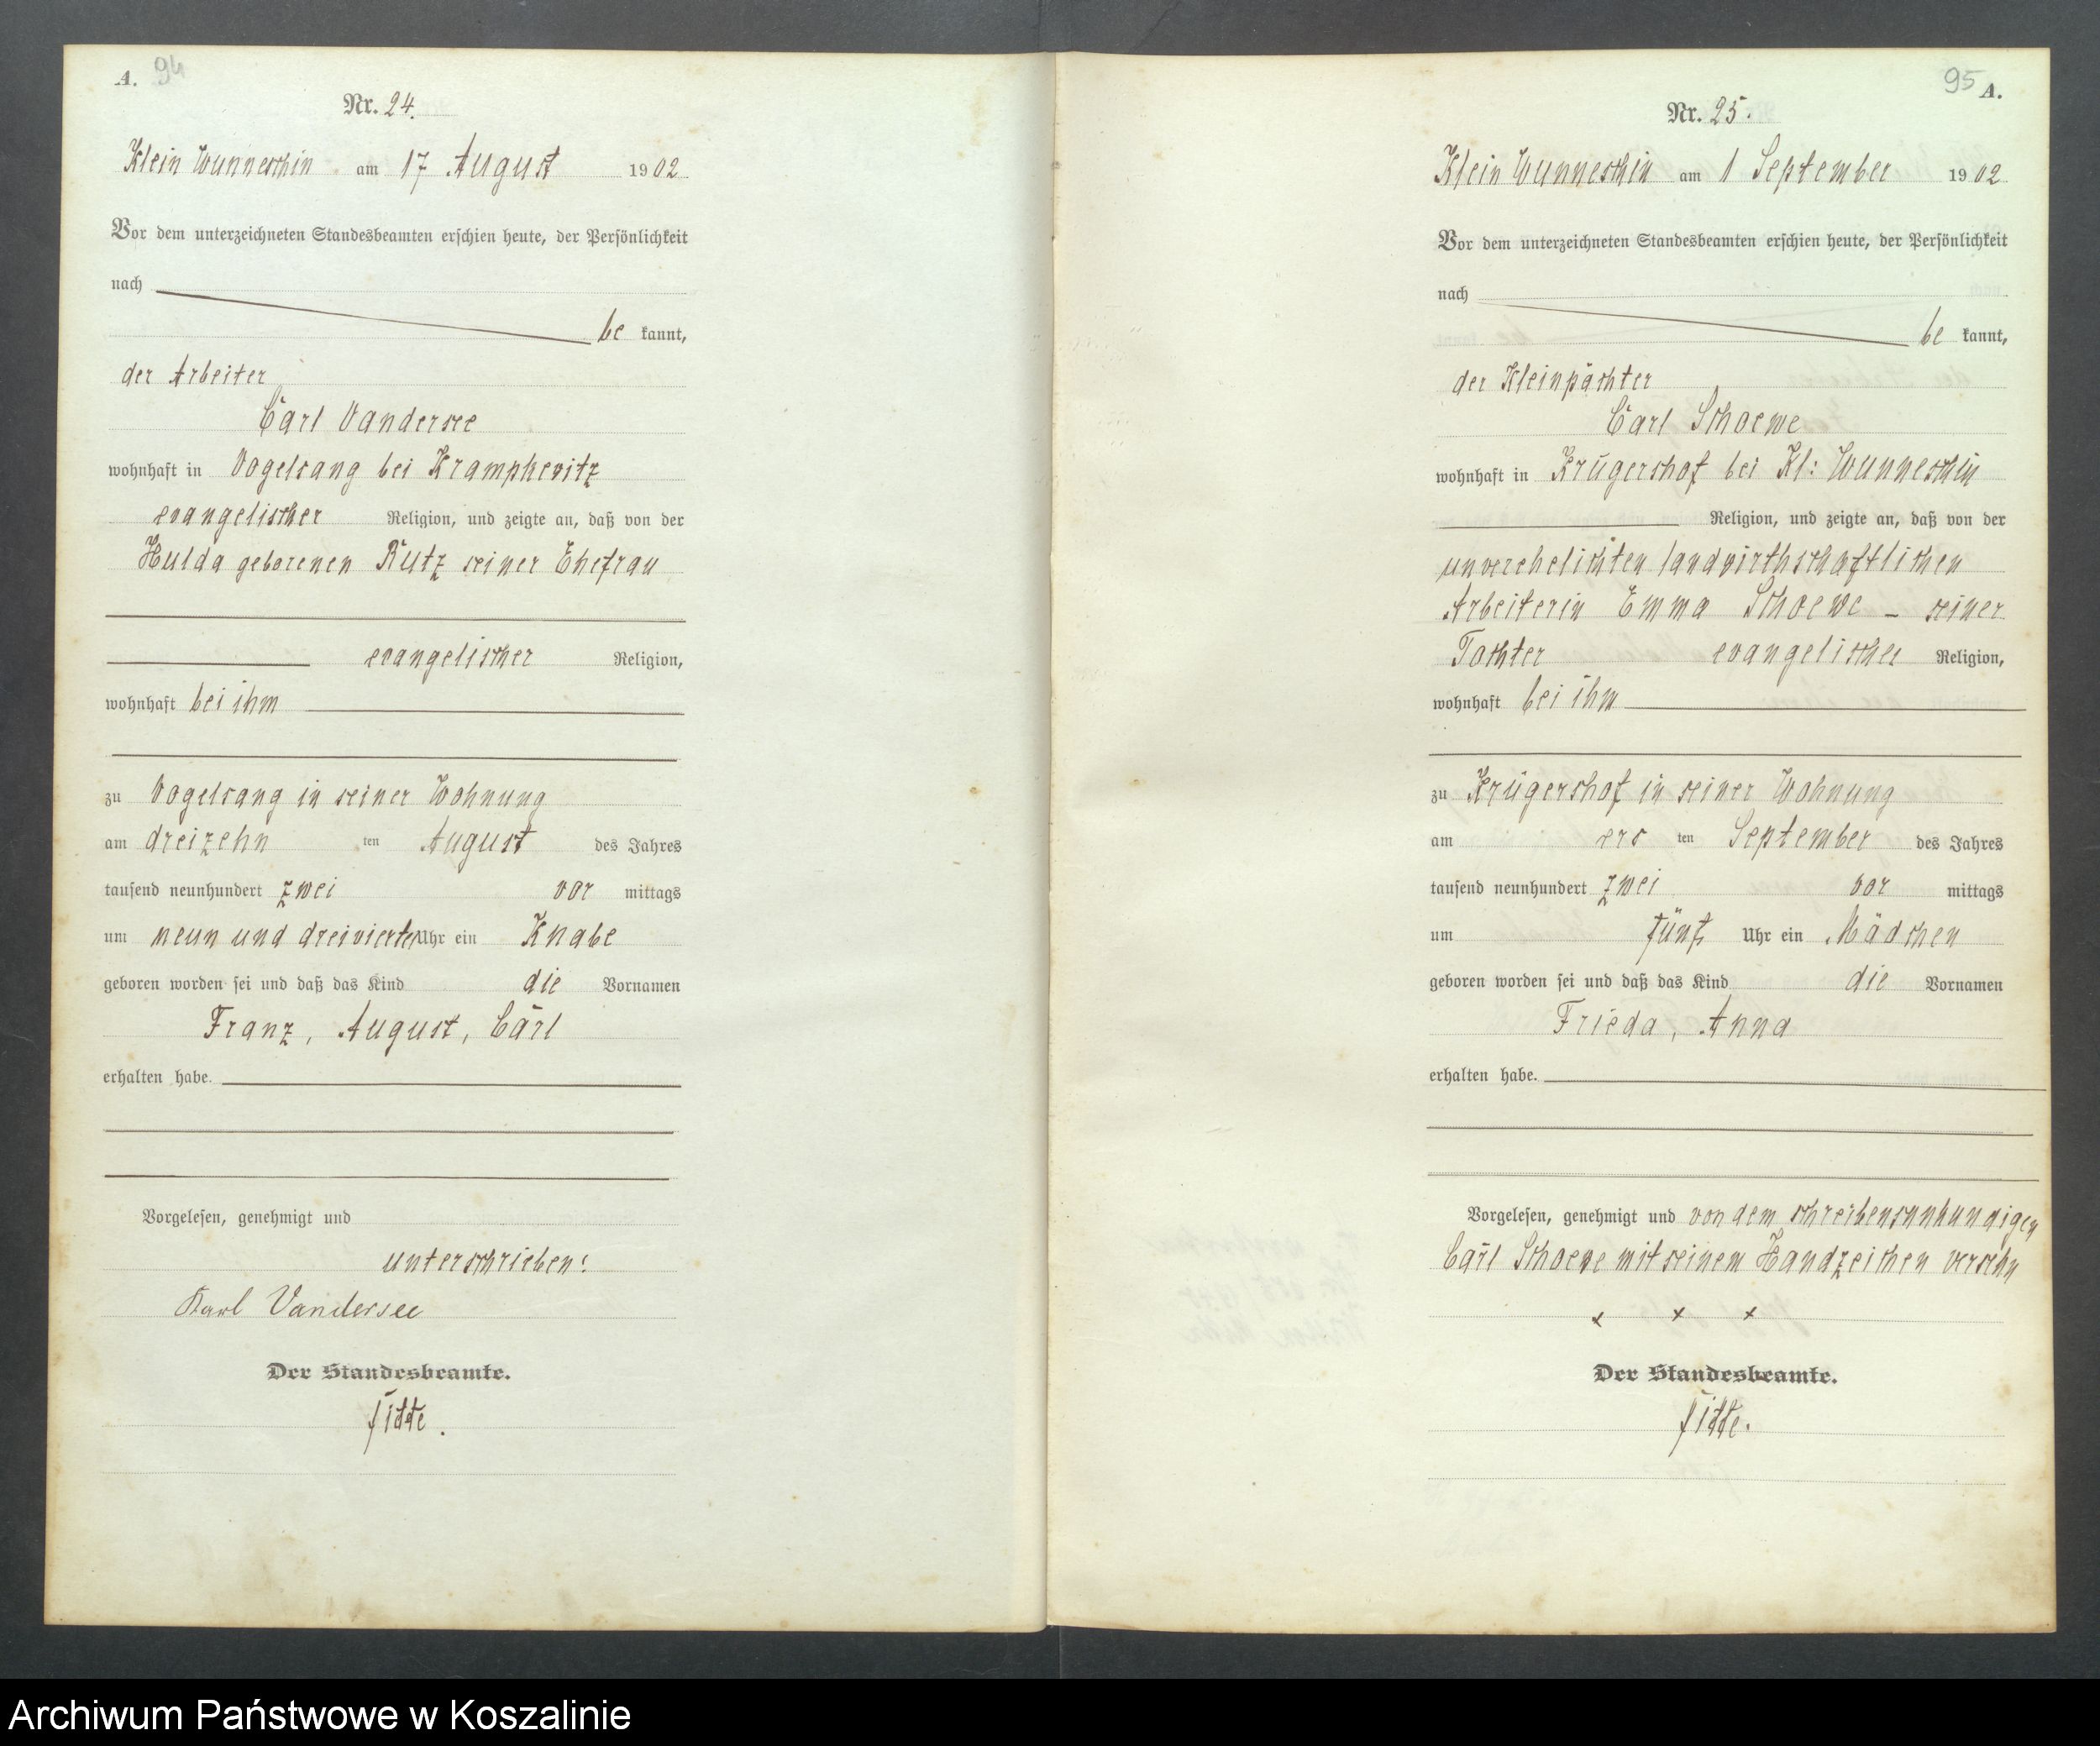 A. 94
Nr. 24.
Klein Wunneschin am 17 August 1902
Vor dem unterzeichneten Standesbeamten erschien heute, der Persönlichkeit
nach
be kannt,
der Arbeiter
Carl Vandersee
wohnhaft in Vogelsang bei Krampkevitz
evangelischer Religion, und zeigte an, daß von der
Hulda geborenen Rutz seiner Ehefrau
evangelischer Religion,
wohnhaft bei ihm
zu Vogelsang in seiner Wohnung
am dreizehn ten August des Jahres
tausend neunhundert zwei vor mittags
um neun und dreiviertel Uhr ein Knabe
geboren worden sei und daß das Kind die Vornamen
Franz, August, Carl
erhalten habe.
Vorgelesen, genehmigt und
unterschrieben:
Karl Vandersee
Der Standesbeamte.
95 A.
Nr. 25.
Klein Wunneschin am 1 September 1902
Vor dem unterzeichneten Standesbeamten erschien heute, der Persönlichkeit
nach
be kannt,
der Kleinpächter
Carl Schoewe
wohnhaft in Krügershof bei Kl: Wunneschin
Religion, und zeigte an, daß von der
unverehelichten landwirthschaftlichen
Arbeiterin Emma Schoewe – seiner
Tochter evangelischer Religion,
wohnhaft bei ihm
zu Krügershof in seiner Wohnung
am ers ten September des Jahres
tausend neunhundert zwei vor mittags
um fünf Uhr ein Mädchen
geboren worden sei und daß das Kind die Vornamen
Frieda, Anna
erhalten habe.
Vorgelesen, genehmigt und von dem schreibensunkundigen
Carl Schoewe mit seinem Handzeichen versehn
x x x
Der Standesbeamte.
Archiwum Państwowe w Koszalinie